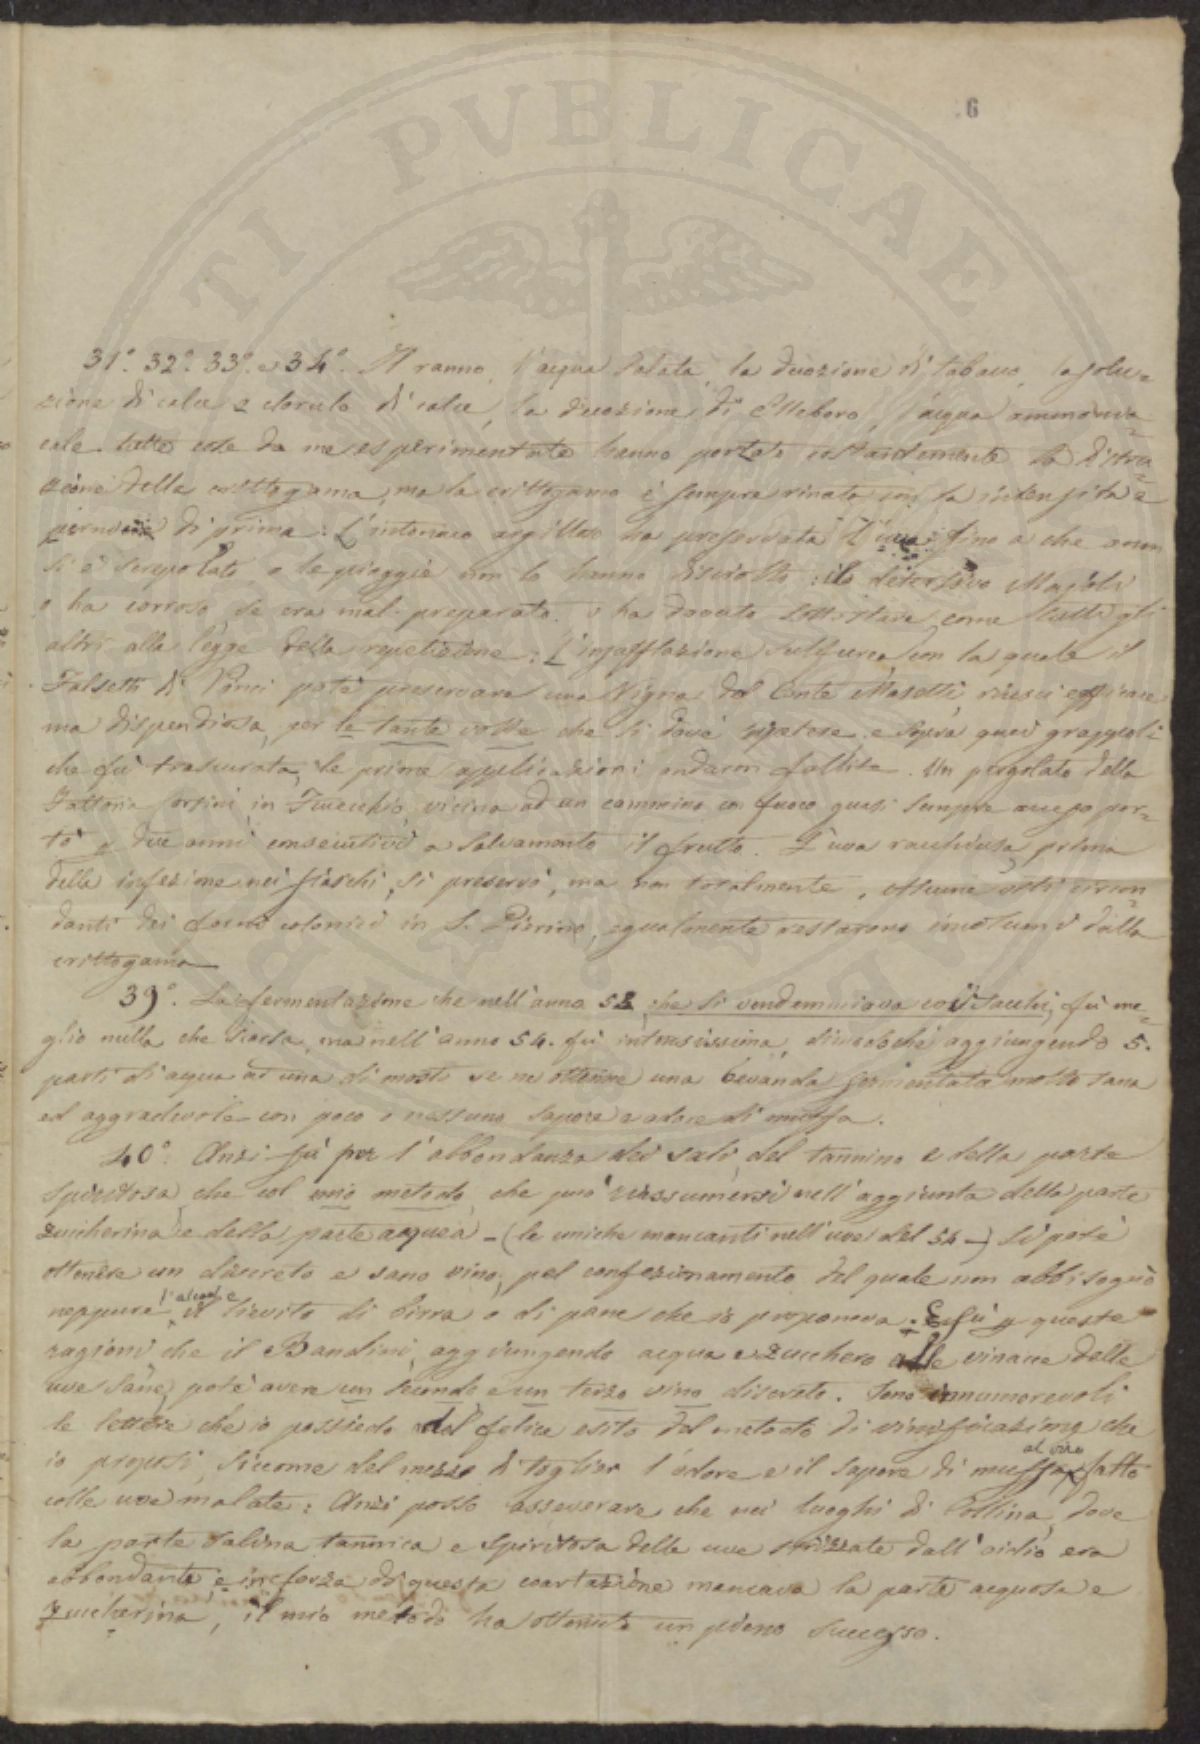 6
TI PVBLICAE
31.° 32.° 33.° e 34.° Il ranno, l'acqua salata, la decozione di tabacco, la solu=
zione di calce e cloruto di calce, la decozione di Elleboro, l'acqua ammonia=
cale tutte cose da me esperimentate hanno portato costantemente la distru=
zione della crittogama, ma la crittogama è sempre rinata con la intensità e
di prima: L'intonaco argilloso ha preservata l'uva fino a che non
si è screpolato, o le pioggie non lo hanno disciolto: il detersivo Majoli
o ha corroso, se era mal preparato, o ha dovuto sottostare come tutti gli
altri alla legge della repetizione: L'insufflazione sulfurea con la quale il
Falsetti di Vinci potè preservare una Vigna del Conte Masetti, riuscì efficace
ma dispendiosa, per le tante volte che si dové ripetere, e sopra quei grappoli
che fù trascurata, le prime applicazioni andaron fallite. Un pergolato della
Fattoria Corsini, in Fucecchio, vicino ad un cammino con fuoco quasi sempre acceso por=
tò p due anni consecutivi a salvamento il frutto. L'uva racchiusa, prima
della infezione nei fiaschi, si preservò, ma non totalmente, viti circon=
danti dei forni colonici in S. Pierino, egualmente restarono incolumi dalla
crittogama
39.° La fermentazione che nell'anno 52, che si vendemmiava co' sacchi, fù me=
glio nulla che scarsa, ma nell'anno 54. fù intensissima, dimodoché aggiungendo 5.
parti di acqua ad una di mosto se ne ottenne una bevanda fermentata molto sana
ed aggradevole con poco o nessuno sapore e odore di muffa.
40.° Anzi fù per l'abbondanza dei sali, del tannino e della parte
spiritosa, che col mio metodo, che può riassumersi nell'aggiunta della parte
zuccherina e della parte acquea – (le uniche mancanti nell'uve del 54 –) si potè
ottenere un discreto e sano vino, pel confezionamento del quale non abbisognò
l'alcool e
neppure il lievito di birra o di pane che io proponeva. E fù p queste
ragioni che il Bandini, aggiungendo acqua e zucchero alle vinacce delle
uve sane, potè avere un secondo e un terzo vino discreto. Sono innumerevoli
le lettere che io possiedo del felice esito del metodo di vinificazione che
al vino
io proposi, siccome del mezzo di toglier l'odore e il sapore di muffa fatto
colle uve malate: Anzi posso asseverare che nei luoghi di Collina, dove
la parte salina tannica e spiritosa delle uve strizzate dall'oidio era
abbondante, e in forza di questa coartazione mancava la parte acquosa e
zuccherina, il mio metodo ha ottenuto un pieno successo.